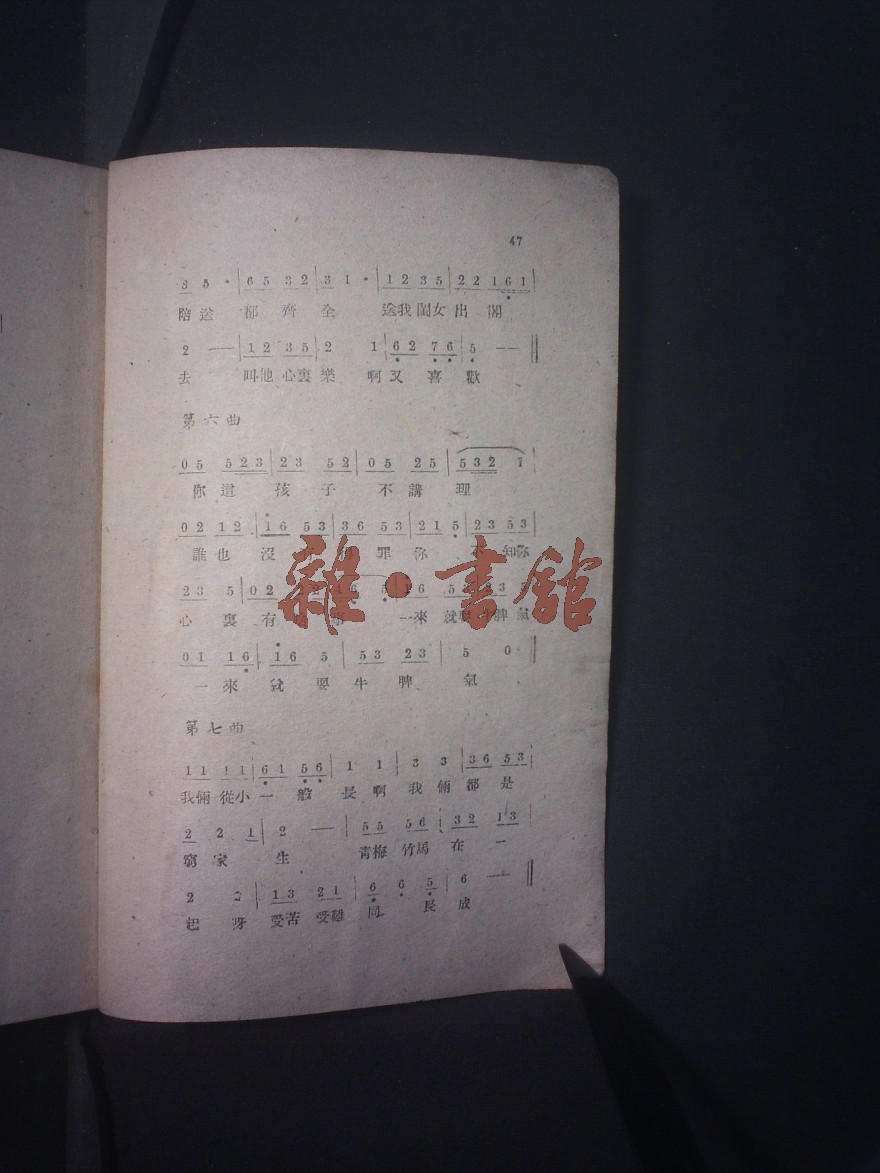 47
3 5 · | 6 5 3 2 | 3 1 · | 1 2 3 5 | 2 2 1 6 1 |
陪送 都齊全 送我閨女出閣
2 —— | 1 2 3 5 | 2 1 | 6 2 7 6 | 5 —— ‖
去 叫他心裏樂 啊又喜歡
第六曲
0 5 5 2 3 | 2 3 5 2 | 0 5 2 5 | 5 3 2 1 |
你這孩子不講理
0 2 1 2 | 1 6 5 3 | 3 6 5 3 | 2 1 5 | 2 3 5 3 |
誰也沒 罪你 不知你
2 3 5 | 0 2
心裏有 事 一來就耍 脾氣
0 1 1 6 | 1 6 5 | 5 3 2 3 | 5 0 ‖
一來就耍牛脾氣
第七曲
1 1 1 1 | 6 1 5 6 | 1 1 | 3 3 | 3 6 5 3 |
我倆從小一般長啊我倆都是
2 2 1 | 2 — | 5 5 5 6 | 3 2 1 3 |
窮家生 青梅竹馬在一
2 2 | 1 3 2 1 | 6 6 5 | 6 — ‖
起呀受苦受難同長成
雜·書館